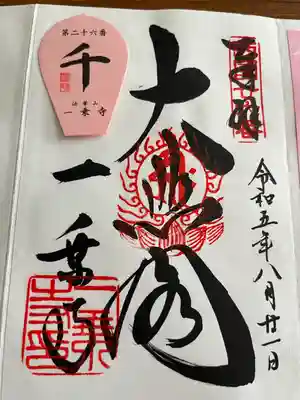 奉拝
令和五年八月廿一日
大悲閣
一乗寺
第二十六番
千
法華山
一乗寺